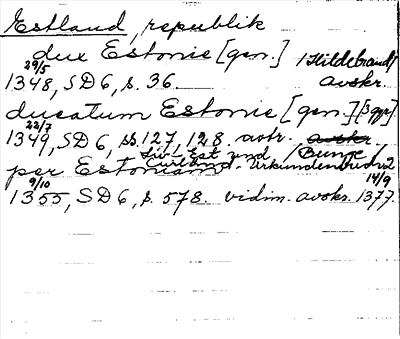 Estland, republik
dux Estonie [gen.] /Hildebrand/
29/5
1348, SD 6, s. 36. avskr.
ducatum Estonie [gen.] [3 ggr]
22/7
1349, SD 6, ss. 127, 128. avtr. avskr.
Liv-, Est und /Bunge/
Curland. Urkundenbuch 2
per Estoniam
9/10 14/9
1355, SD 6, s. 578. vidim. avskr. 1377.